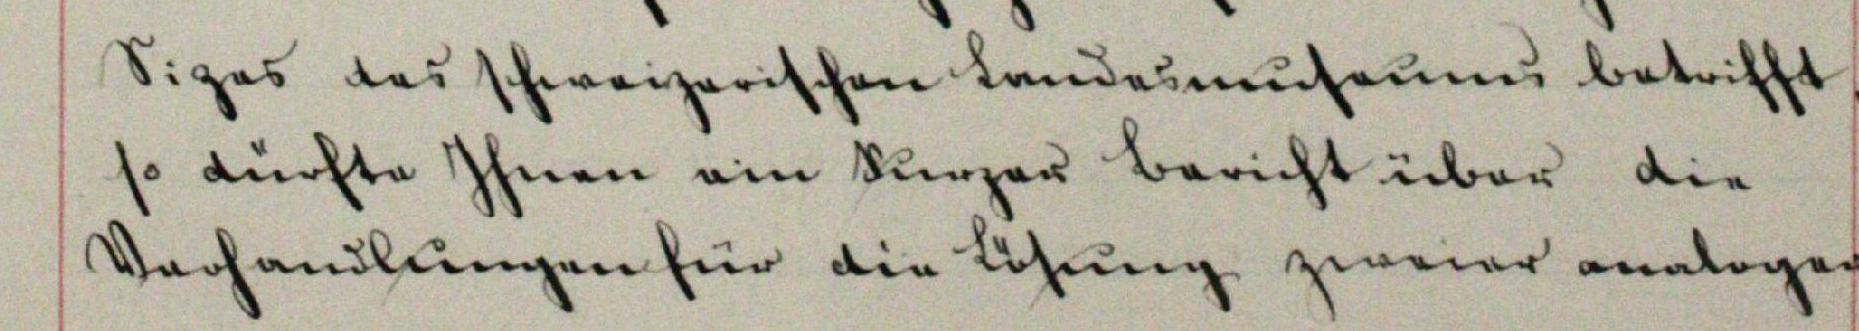 Sizes des schweizerischen Landesmuseums betrifft,
so dürfte Ihnen ein kurzer Bericht über die
Verhandlungen für die Lösung zweier analoger